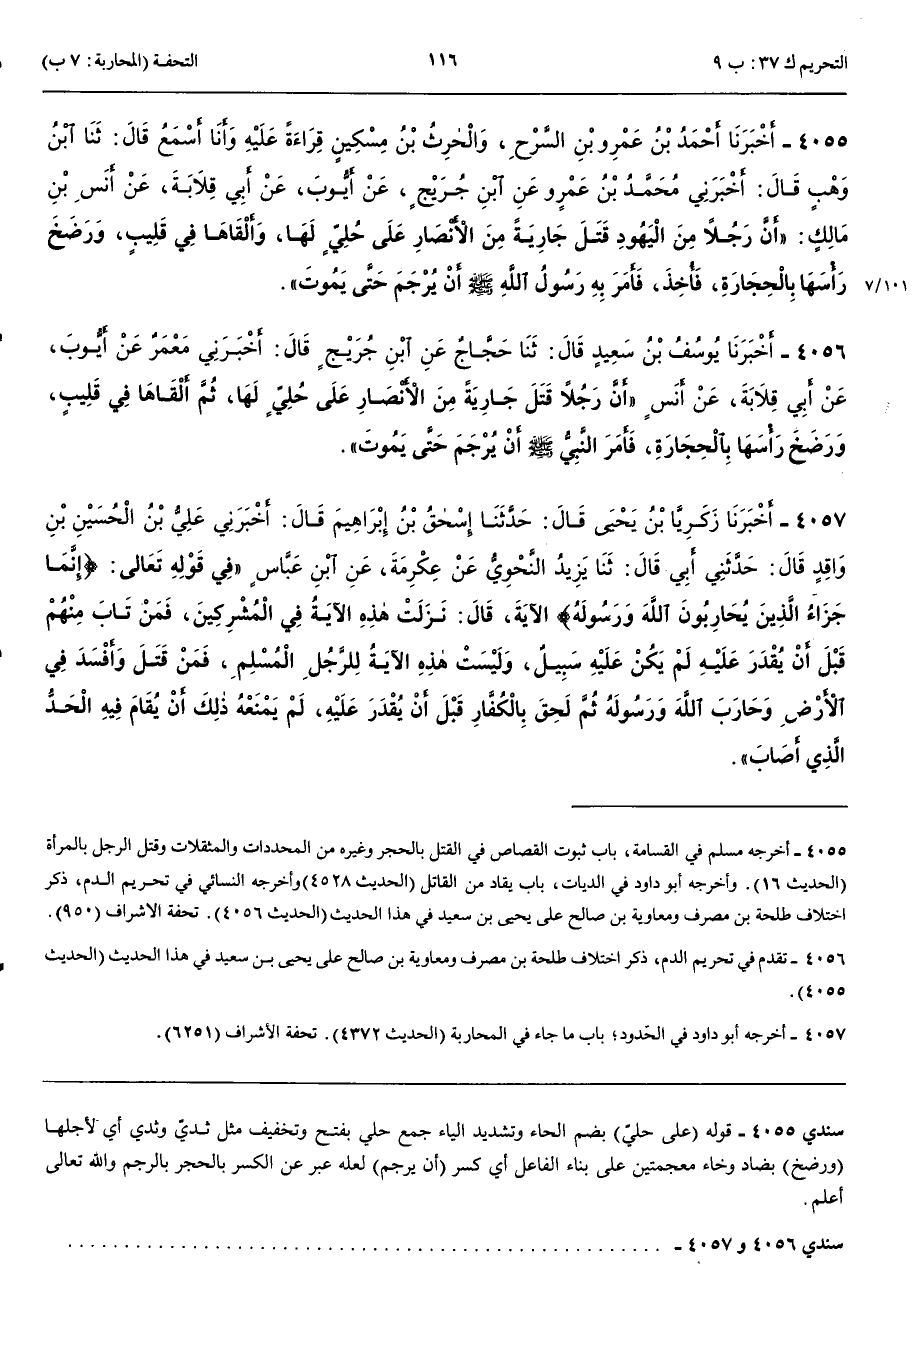 التحريم ك ٣٧: ب ٩ ١١٦ التحفة (المحاربة: ٧ ب)
٤٠٥٥ ـ أَخْبَرَنَا أَحْمَدُ بْنُ عَمْرِو بْنِ السَّرْحِ، وَالْحٰرِثُ بْنُ مِسْكِينٍ قِرَاءَةً عَلَيْهِ وَأَنَا أَسْمَعُ قَالَ: ثَنَا ٱبْنُ
وَهْبٍ قَالَ: أَخْبَرَنِي مُحَمَّدُ بْنُ عَمْرٍو عَنِ ٱبْنِ جُرَيْجٍ، عَنْ أَيُّوبَ، عَنْ أَبِي قِلَابَةَ، عَنْ أَنَسِ بْنِ
مَالِكٍ: «أَنَّ رَجُلاً مِنَ الْيَهُودِ قَتَلَ جَارِيَةً مِنَ الْأَنْصَارِ عَلَى حُلِيٍّ لَهَا، وَأَلْقَاهَا فِي قَلِيبٍ، وَرَضَخَ
رَأْسَهَا بِالْحِجَارَةِ، فَأُخِذَ، فَأَمَرَ بِهِ رَسُولُ اللَّهِ ﷺ أَنْ يُرْجَمَ حَتَّى يَمُوتَ». ٧/١٠١
٤٠٥٦ ـ أَخْبَرَنَا يُوسُفُ بْنُ سَعِيدٍ قَالَ: ثَنَا حَجَّاجٌ عَنِ ٱبْنِ جُرَيْجٍ قَالَ: أَخْبَرَنِي مَعْمَرٌ عَنْ أَيُّوبَ،
عَنْ أَبِي قِلَابَةَ، عَنْ أَنَسٍ «أَنَّ رَجُلًا قَتَلَ جَارِيَةً مِنَ الْأَنْصَارِ عَلَى حُلِيٍّ لَهَا، ثُمَّ أَلْقَاهَا فِي قَلِيبٍ،
وَرَضَخَ رَأْسَهَا بِٱلْحِجَارَةِ، فَأَمَرَ النَّبِيُّ ﷺ أَنْ يُرْجَمَ حَتَّى يَمُوتَ».
٤٠٥٧ ـ أَخْبَرَنَا زَكَرِيَّا بْنُ يَحْيَى قَالَ: حَدَّثَنَا إِسْحٰقُ بْنُ إِبْرَاهِيمَ قَالَ: أَخْبَرَنِي عَلِيُّ بْنُ الْحُسَيْنِ بْنِ
وَاقِدٍ قَالَ: حَدَّثَنِي أَبِي قَالَ: ثَنَا يَزِيدُ النَّحْوِيُّ عَنْ عِكْرِمَةَ، عَنِ ٱبْنِ عَبَّاسٍ «فِي قَوْلِهِ تَعَالى: ﴿إِنَّمَا
جَزَاءُ الَّذِينَ يُحَارِبُونَ ٱللَّهَ وَرَسُولَهُ﴾ الآيَةَ، قَالَ: نَزَلَتْ هٰذِهِ الآيَةُ فِي الْمُشْرِكِينَ، فَمَنْ تَابَ مِنْهُمْ
قَبْلَ أَنْ يُقْدَرَ عَلَيْهِ لَمْ يَكُنْ عَلَيْهِ سَبِيلٌ، وَلَيْسَتْ هٰذِهِ الآيَةُ لِلرَّجُلِ الْمُسْلِمِ، فَمَنْ قَتَلَ وَأَفْسَدَ فِي
ٱلْأَرْضِ وَحَارَبَ ٱللَّهَ وَرَسُولَهُ ثُمَّ لَحِقَ بِالْكُفَّارِ قَبْلَ أَنْ يُقْدَرَ عَلَيْهِ، لَمْ يَمْنَعْهُ ذٰلِكَ أَنْ يُقَامَ فِيهِ الْحَدُّ
الَّذِي أَصَابَ».
٤٠٥٥ ـ أخرجه مسلم في القسامة، باب ثبوت القصاص في القتل بالحجر وغيره من المحددات والمثقلات وقتل الرجل بالمرأة
(الحديث ١٦). وأخرجه أبو داود في الديات، باب يقاد من القاتل (الحديث ٤٥٢٨) وأخرجه النسائي في تحريم الدم، ذكر
اختلاف طلحة بن مصرف ومعاوية بن صالح على يحيى بن سعيد في هذا الحديث (الحديث ٤٠٥٦). تحفة الاشراف (٩٥٠).
٤٠٥٦ ـ تقدم في تحريم الدم، ذكر اختلاف طلحة بن مصرف ومعاوية بن صالح على يحيى بن سعيد في هذا الحديث (الحديث
٤٠٥٥).
٤٠٥٧ ـ أخرجه أبو داود في الحدود؛ باب ما جاء في المحاربة (الحديث ٤٣٧٢). تحفة الأشراف (٦٢٥١).
سندي ٤٠٥٥ ـ قوله (على حليّ) بضم الحاء وتشديد الياء جمع حلي بفتح وتخفيف مثل ثديّ وثدي أي لأجلها
(ورضخ) بضاد وخاء معجمتين على بناء الفاعل أي كسر (أن يرجم) لعله عبر عن الكسر بالحجر بالرجم والله تعالى
أعلم.
سندي ٤٠٥٦ و ٤٠٥٧ ـ ..................................................